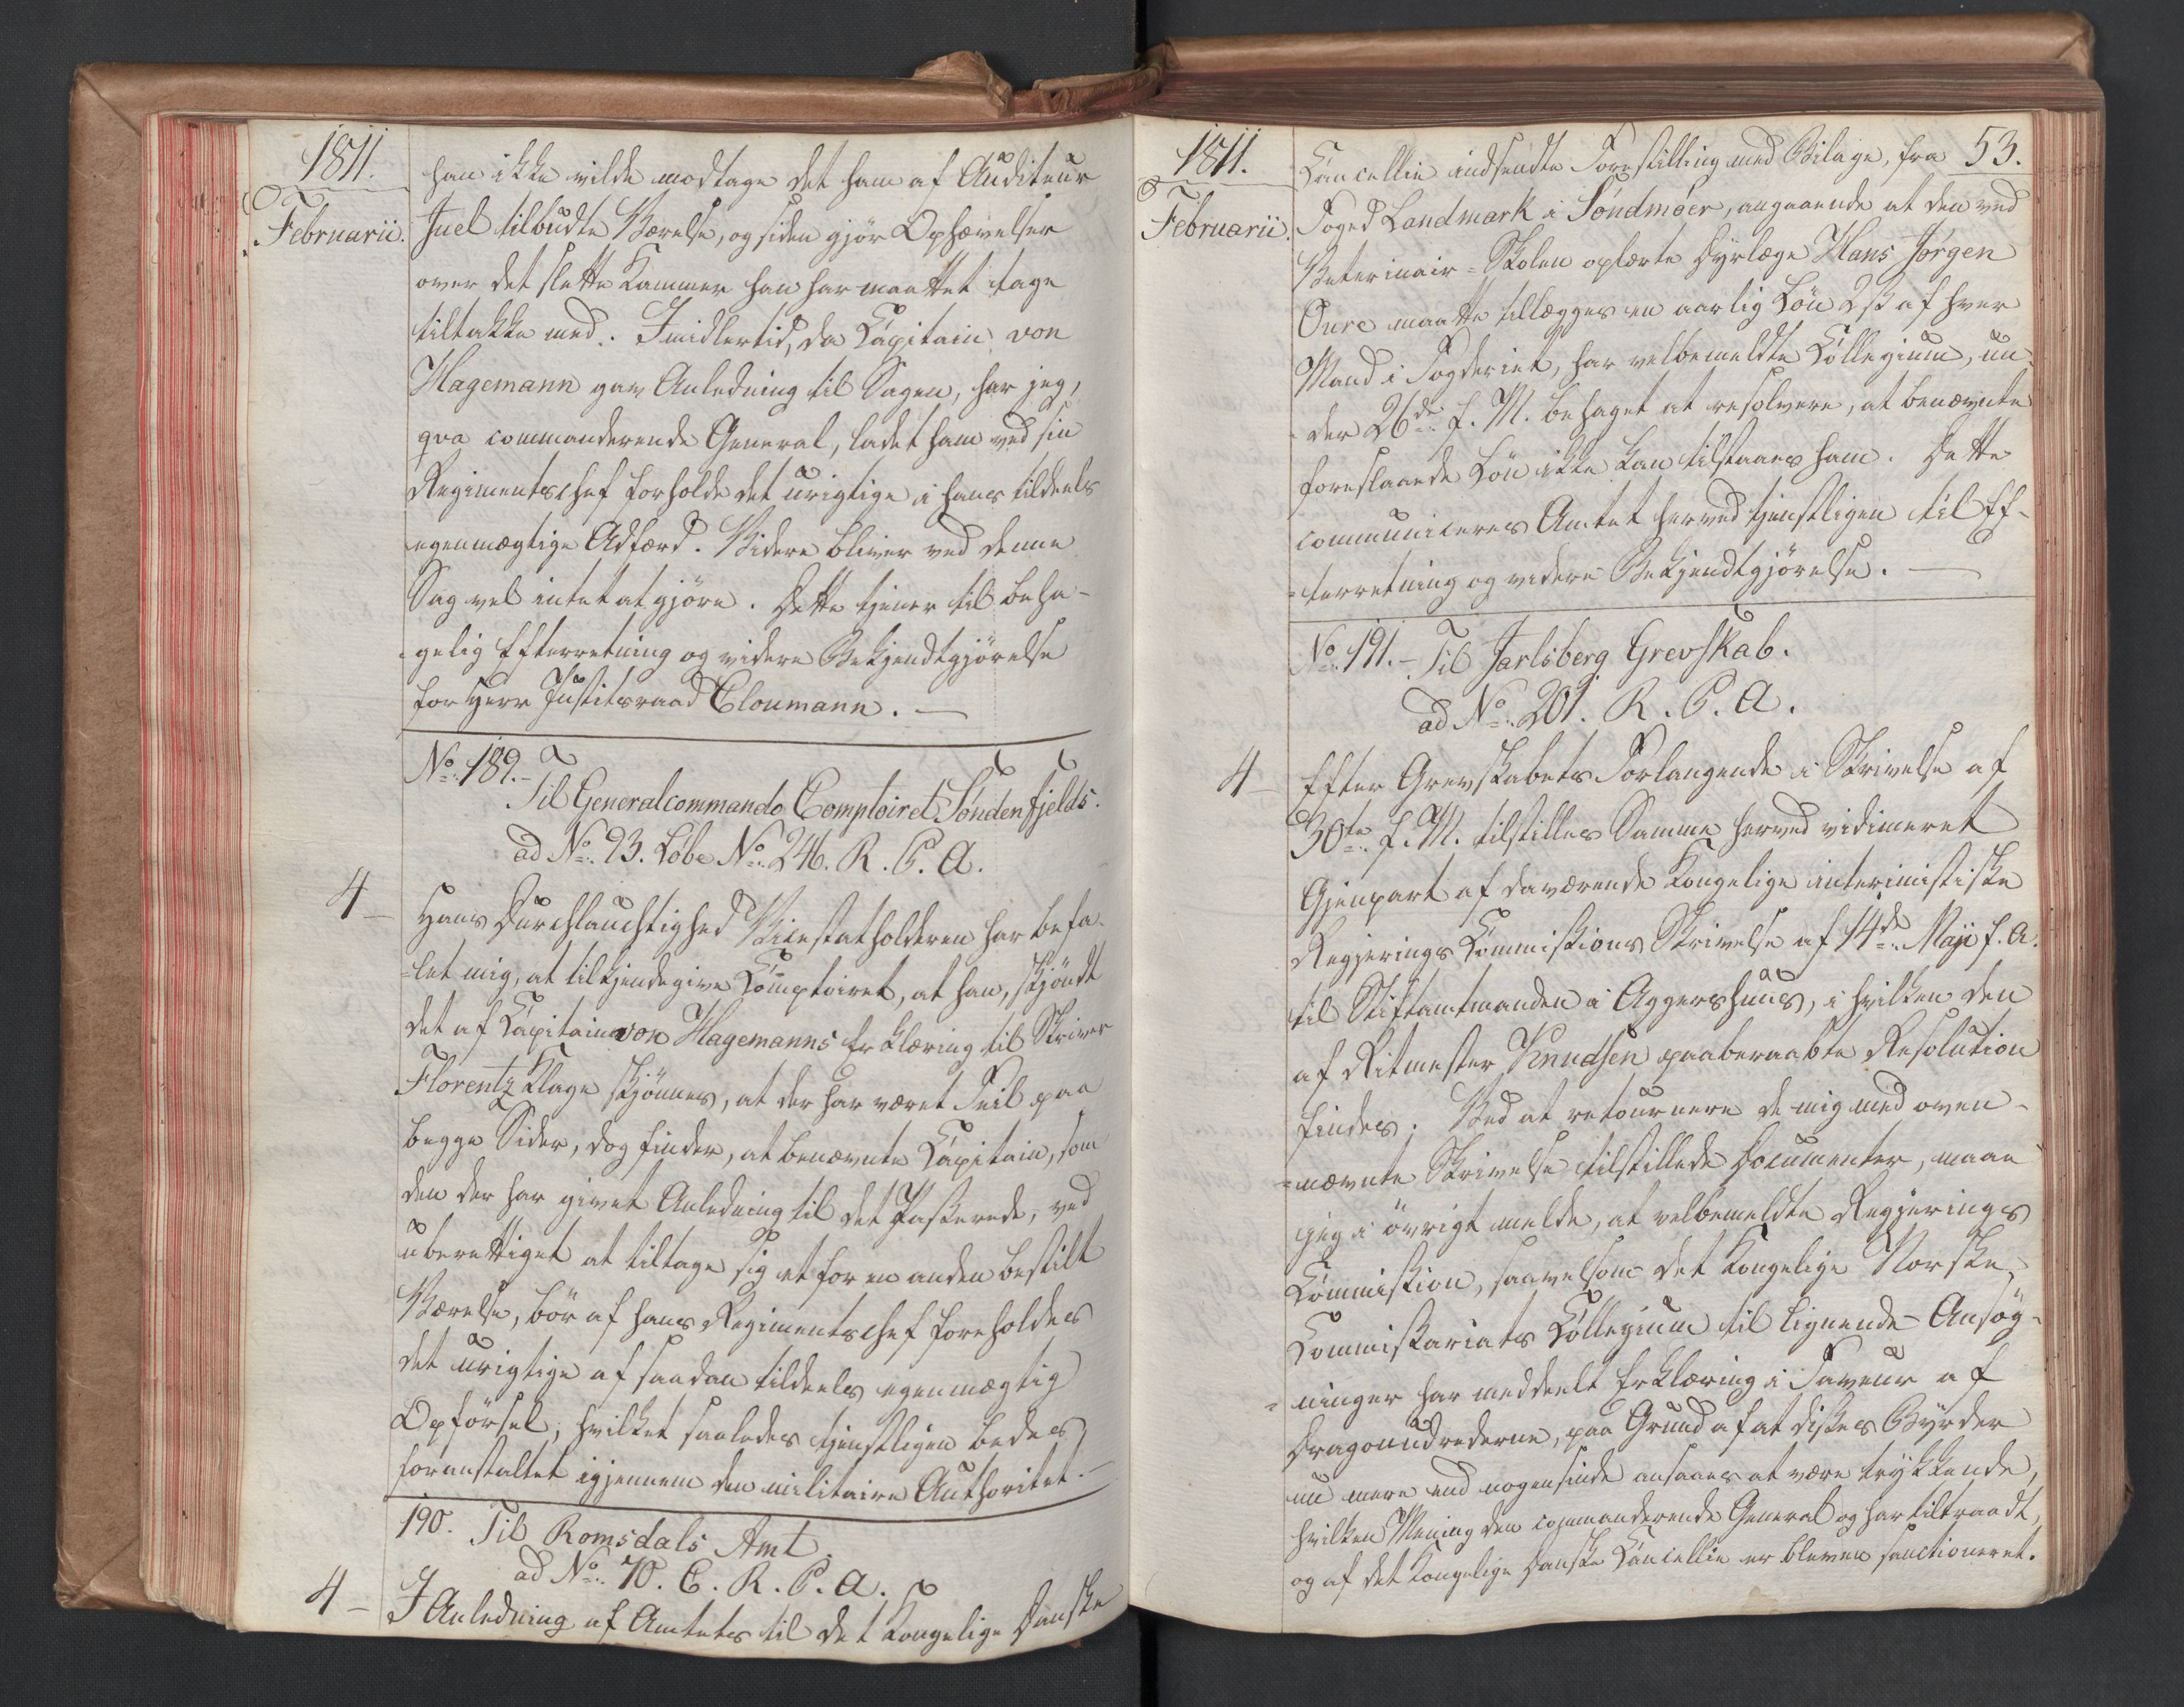 1811.
Februarii.
han ikke vilde modtage det ham af Auditeur
Juel tilbudte Værelse, og siden gjør Ophævelser
over det slette Kammer han har maattet tage
tiltakke med. Imidlertid, da Capitain von
Hagemann gav Anledning til Sagen, har jeg,
qva commanderende General, ladet ham ved sin
Regimentschef forholde det urigtige i hans tildeels
egenmægtige Adfærd. Videre bliver ved denne
Sag vel intet at gjøre. Dette tjener til beha-
gelig Efterretning og videre Bekjendtgjørelse
for Herr Justitsraad Cloumann. —
No. 189. -
Til Generalcommando Comptoiret Søndenfjelds.
ad No. 93. Løbe No. 246. R. P. A.
4 -
Hans Durchlauchtighed Vicestatholderen har befa-
-let mig, at tilkjendegive Comptoiret, at han, skjøndt
det af Capitain von Hagemanns Erklæring til Skriver
Florentz Klage skjønnes, at der har været Feil paa
begge Sider, dog finder, at benævnte Capitain, som
den der har givet Anledning til det Passerede, ved
uberettiget at tiltage sig et for en anden bestilt
Værelse, bør af hans Regimentschef foreholdes
det urigtige af saadan tildeels egenmægtig
Opførsel, hvilket saaledes tjenstligen bedes
foranstaltet igjennem den militaire Authoritet. -
190. Til Romsdals Amt.
ad No. 70. C. R. P. A.
4 -
I Anledning af Amtets til det Kongelige Danske
1811.
Februarii.
53.
Cancellie indsendte Forestilling med Bilage, fra
Foged Landmark i Søndmøer, angaaende at den ved
Veterinair-Skolen oplærte Dyrlæge Hans Jørgen
Oure maatte tillægges en aarlig Løn 2 ß af hver
Mand i Fogderiet, har velbemeldte Collegium, un-
der 26de f. M. behaget at resolvere, at benævnte
foreslaaede Løn ikke kan tilstaaes ham. Dette
communiceres Amtet herved tjenstligen til Ef-
-terretning og videre Bekjendtgjørelse. —
No. 191. - Til Jarlsberg Grevskab.
ad No. 201. R. P. A.
4 -
Efter Grevskabets Forlangende i Skrivelse af
30te f. M. tilstilles Samme herved vidimeret
Gjenpart af daværende Kongelige interimistiske
Regjerings Commissions Skrivelse af 14de Maji f. A.
til Stiftamtmanden i Aggershuus, i hvilken den
af Ritmester Knudsen paaberaabte Resolution
findes. Ved at retournere de mig med oven-
-nævnte Skrivelse tilstillede Documenter, maae
jeg i øvrigt melde, at velbemeldte Regjerings
Commission, saavelsom det Kongelige Norske
Commissariats Collegium til lignende Ansøg-
-ninger har meddeelt Erklæring i Faveur af
Dragonudrederne, paa Grund af at disses Byrder
nu mere end nogensinde ansaaes at være trykkende,
hvilken Mening den commanderende General og har tiltraadt,
og af det Kongelige Danske Cancellie er bleven sanctioneret.